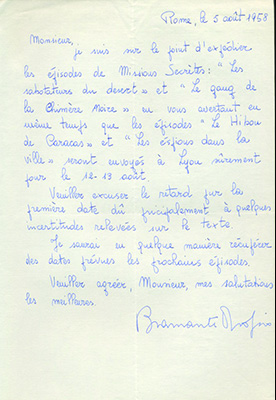 Rome, le 5 août 1958
Monsieur,
je suis sur le point d'expédier
les épisodes de Missions Secrètes: "Les
saboteurs du désert" et "Le gang de
la Chimère Noire" en vous avertant en
même temps que les épisodes "Le Hibou
de Caracas" et "Les espions dans la
ville" seront envoyés à Lyon sûrement
pour le 12-13 août.
Veuillez excuser le retard sur la
première date dû principalement à quelques
incertitudes relevées sur le texte.
Je saurai en quelque manière récupérer
des dates prévues les prochains épisodes.
Veuillez agréer, Monsieur, mes salutations
les meilleures.